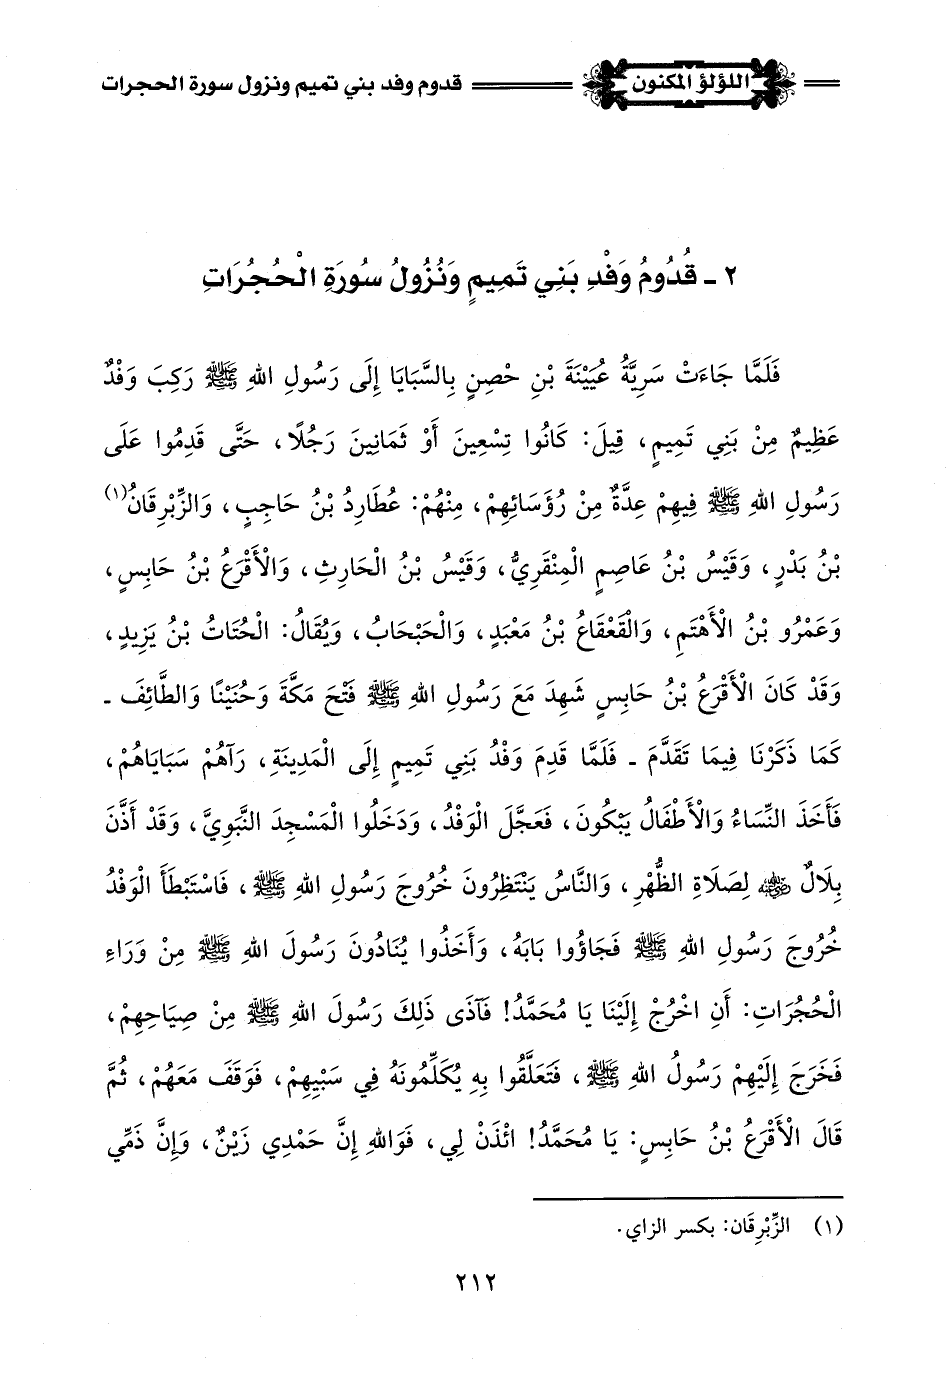 اللؤلؤ المكنون قدوم وفد بني تميم ونزول سورة الحجرات
٢ - قُدُومُ وَفْدِ بَنِي تَمِيمٍ وَنُزُولُ سُورَةِ الْحُجُرَاتِ
فَلَمَّا جَاءَتْ سَرِيَّةُ عُيَيْنَةَ بْنِ حْصِنٍ بِالسَّبَايَا إِلَى رَسُولِ اللهِ ﷺ رَكِبَ وَفْدٌ
عَظِيمٌ مِنْ بَنِي تَمِيمٍ، قِيلَ: كَانُوا تِسْعِينَ أَوْ ثَمَانِينَ رَجُلًا، حَتَّى قَدِمُوا عَلَى
رَسُولِ اللهِ ﷺ فِيهِمْ عِدَّةٌ مِنْ رُؤَسَائِهِمْ، مِنْهُمْ: عُطَارِدُ بْنُ حَاجِبٍ، وَالزِّبْرِقَانُ(١)
بْنُ بَدْرٍ، وَقَيْسُ بْنُ عَاصِمٍ الْمِنْقَرِيُّ، وَقَيْسُ بْنُ الْحَارِثِ، وَالْأَقْرَعُ بْنُ حَابِسٍ،
وَعَمْرُو بْنُ الْأَهْتَمِ، وَالْقَعْقَاعُ بْنُ مَعْبَدٍ، وَالْحَبْحَابُ، وَيُقَالُ: الْحُتَاتُ بْنُ يَزِيدٍ،
وَقَدْ كَانَ الْأَقْرَعُ بْنُ حَابِسٍ شَهِدَ مَعَ رَسُولِ اللهِ ﷺ فَتْحَ مَكَّةَ وَحُنَيْنًا وَالطَّائِفَ -
كَمَا ذَكَرْنَا فِيمَا تَقَدَّمَ - فَلَمَّا قَدِمَ وَفْدُ بَنِي تَمِيمٍ إِلَى الْمَدِينَةِ، رَآهُمْ سَبَايَاهُمْ،
فَأَخَذَ النِّسَاءُ وَالْأَطْفَالُ يَبْكُونَ، فَعَجَّلَ الْوَفْدُ، وَدَخَلُوا الْمَسْجِدَ النَّبَوِيَّ، وَقَدْ أَذَّنَ
بِلَالٌ ﵁ لِصَلَاةِ الظُّهْرِ، وَالنَّاسُ يَنْتَظِرُونَ خُرُوجَ رَسُولِ اللهِ ﷺ، فَاسْتَبْطَأَ الْوَفْدُ
خُرُوجَ رَسُولِ اللهِ ﷺ فَجَاؤُوا بَابَهُ، وَأَخَذُوا يُنَادُونَ رَسُولَ اللهِ ﷺ مِنْ وَرَاءِ
الْحُجُرَاتِ: أَنِ اخْرُجْ إِلَيْنَا يَا مُحَمَّدُ! فَآذَى ذَلِكَ رَسُولَ اللهِ ﷺ مِنْ صِيَاحِهِمْ،
فَخَرَجَ إِلَيْهِمْ رَسُولُ اللهِ ﷺ، فَتَعَلَّقُوا بِهِ يُكَلِّمُونَهُ فِي سَبْيِهِمْ، فَوَقَفَ مَعَهُمْ، ثُمَّ
قَالَ الْأَقْرَعُ بْنُ حَابِسٍ: يَا مُحَمَّدُ! ائْذَنْ لِي، فَوَاللهِ إِنَّ حَمْدِي زَيْنٌ، وَإِنَّ ذَمِّي
(١) الزِّبْرِقَان: بكسر الزاي.
٢١٢